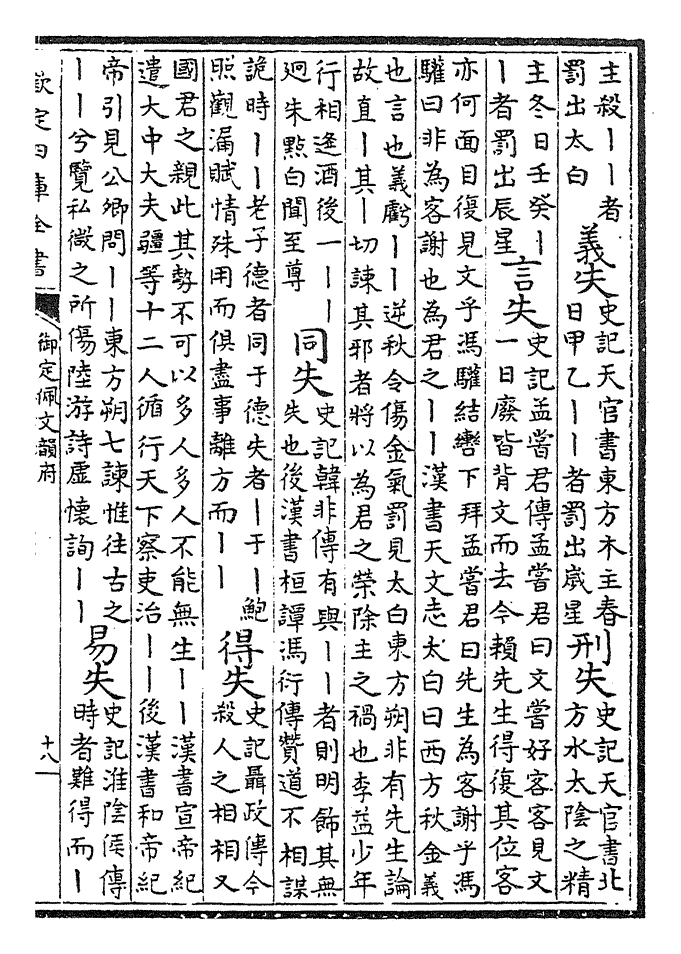 主殺｜｜者
罰出太白
義失
史記天官書東方木主春
日甲乙｜｜者罰出歲星
刑失
史記天官書北
方水太陰之精
主冬日壬癸｜
｜者罰出辰星
言失
史記孟嘗君傳孟嘗君曰文嘗好客客見文
一日廢皆背文而去今賴先生得復其位客
亦何面目復見文乎馮驩結轡下拜孟嘗君曰先生為客謝乎馮
驩曰非為客謝也為君之｜｜漢書天文志太白曰西方秋金義
也言也義虧｜｜逆秋令傷金氣罰見太白東方朔非有先生論
故直｜其｜切諫其邪者將以為君之榮除主之禍也李益少年
行相逢酒後一｜｜
迥朱㸃白聞至尊
同失
史記韓非傳有與｜｜者則明飾其無
失也後漢書桓譚馮衍傳贊道不相謀
詭時｜｜老子德者同于德失者｜于｜鮑
照觀漏賦情殊用而俱盡事離方而｜｜
得失
史記聶政傳今
殺人之相相又
國君之親此其勢不可以多人多人不能無生｜｜漢書宣帝紀
遣大中大夫疆等十二人循行天下察吏治｜｜後漢書和帝紀
帝引見公卿問｜｜東方朔七諫惟往古之
｜｜兮覽私微之所傷陸游詩虛懷詢｜｜
易失
史記淮陰侯傳
時者難得而｜
欽定四庫全書
御定佩文韻府
十八